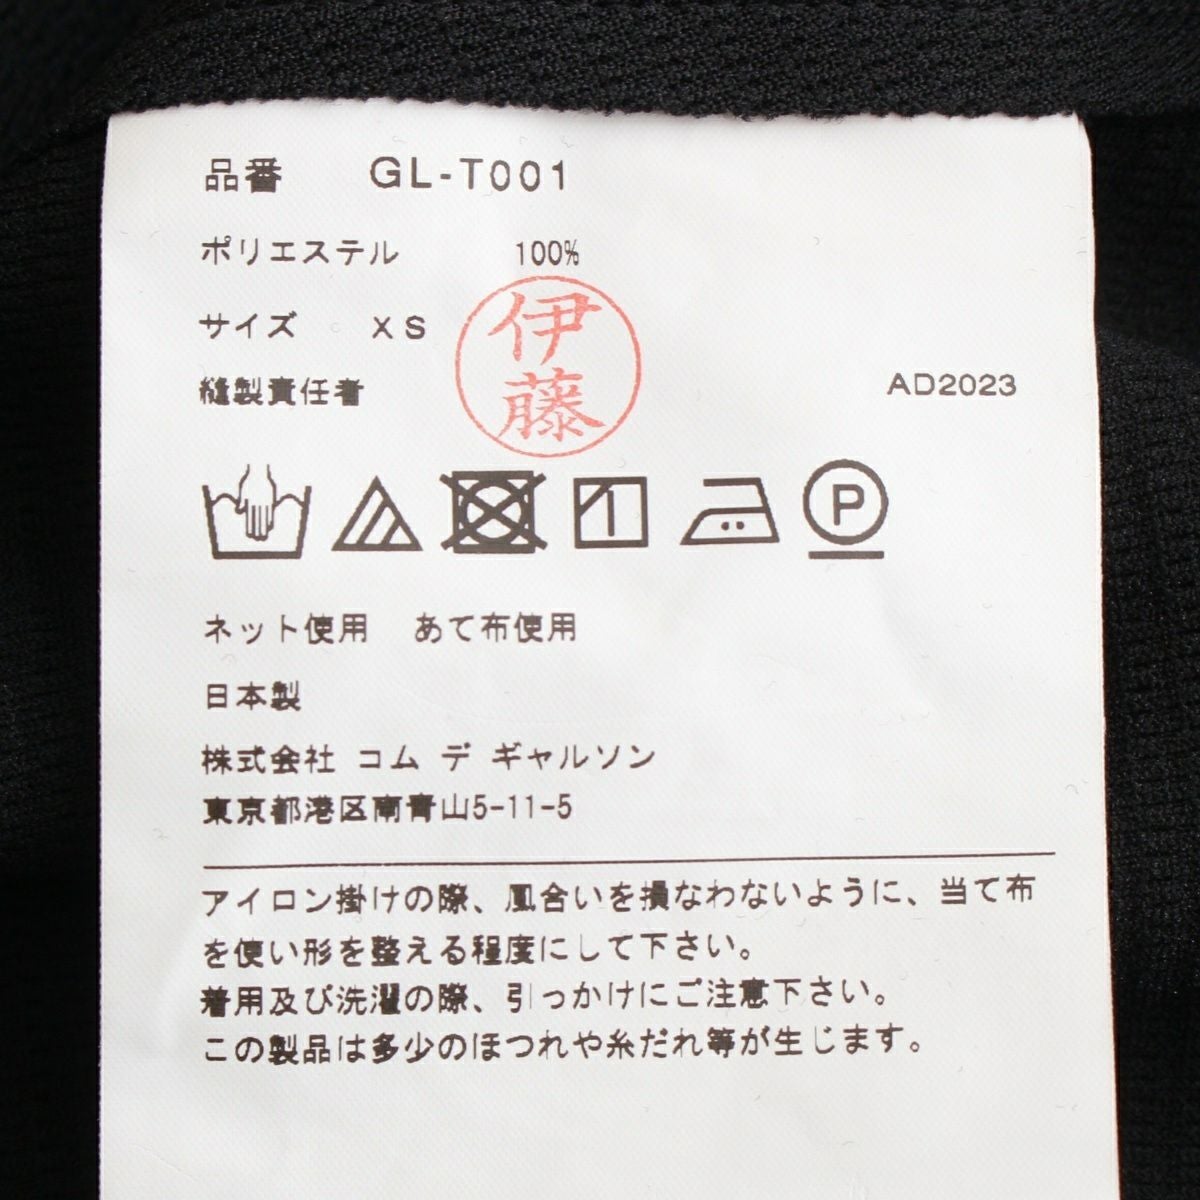 品番 GL-T001
ポリエステル 100%
サイズ XS
伊藤
縫製責任者
AD2023
P
ネット使用 あて布使用
日本製
株式会社 コム デ ギャルソン
東京都港区南青山5-11-5
アイロン掛けの際、風合いを損なわないように、当て布
を使い形を整える程度にして下さい。
着用及び洗濯の際、引っかけにご注意下さい。
この製品は多少のほつれや糸だれ等が生じます。